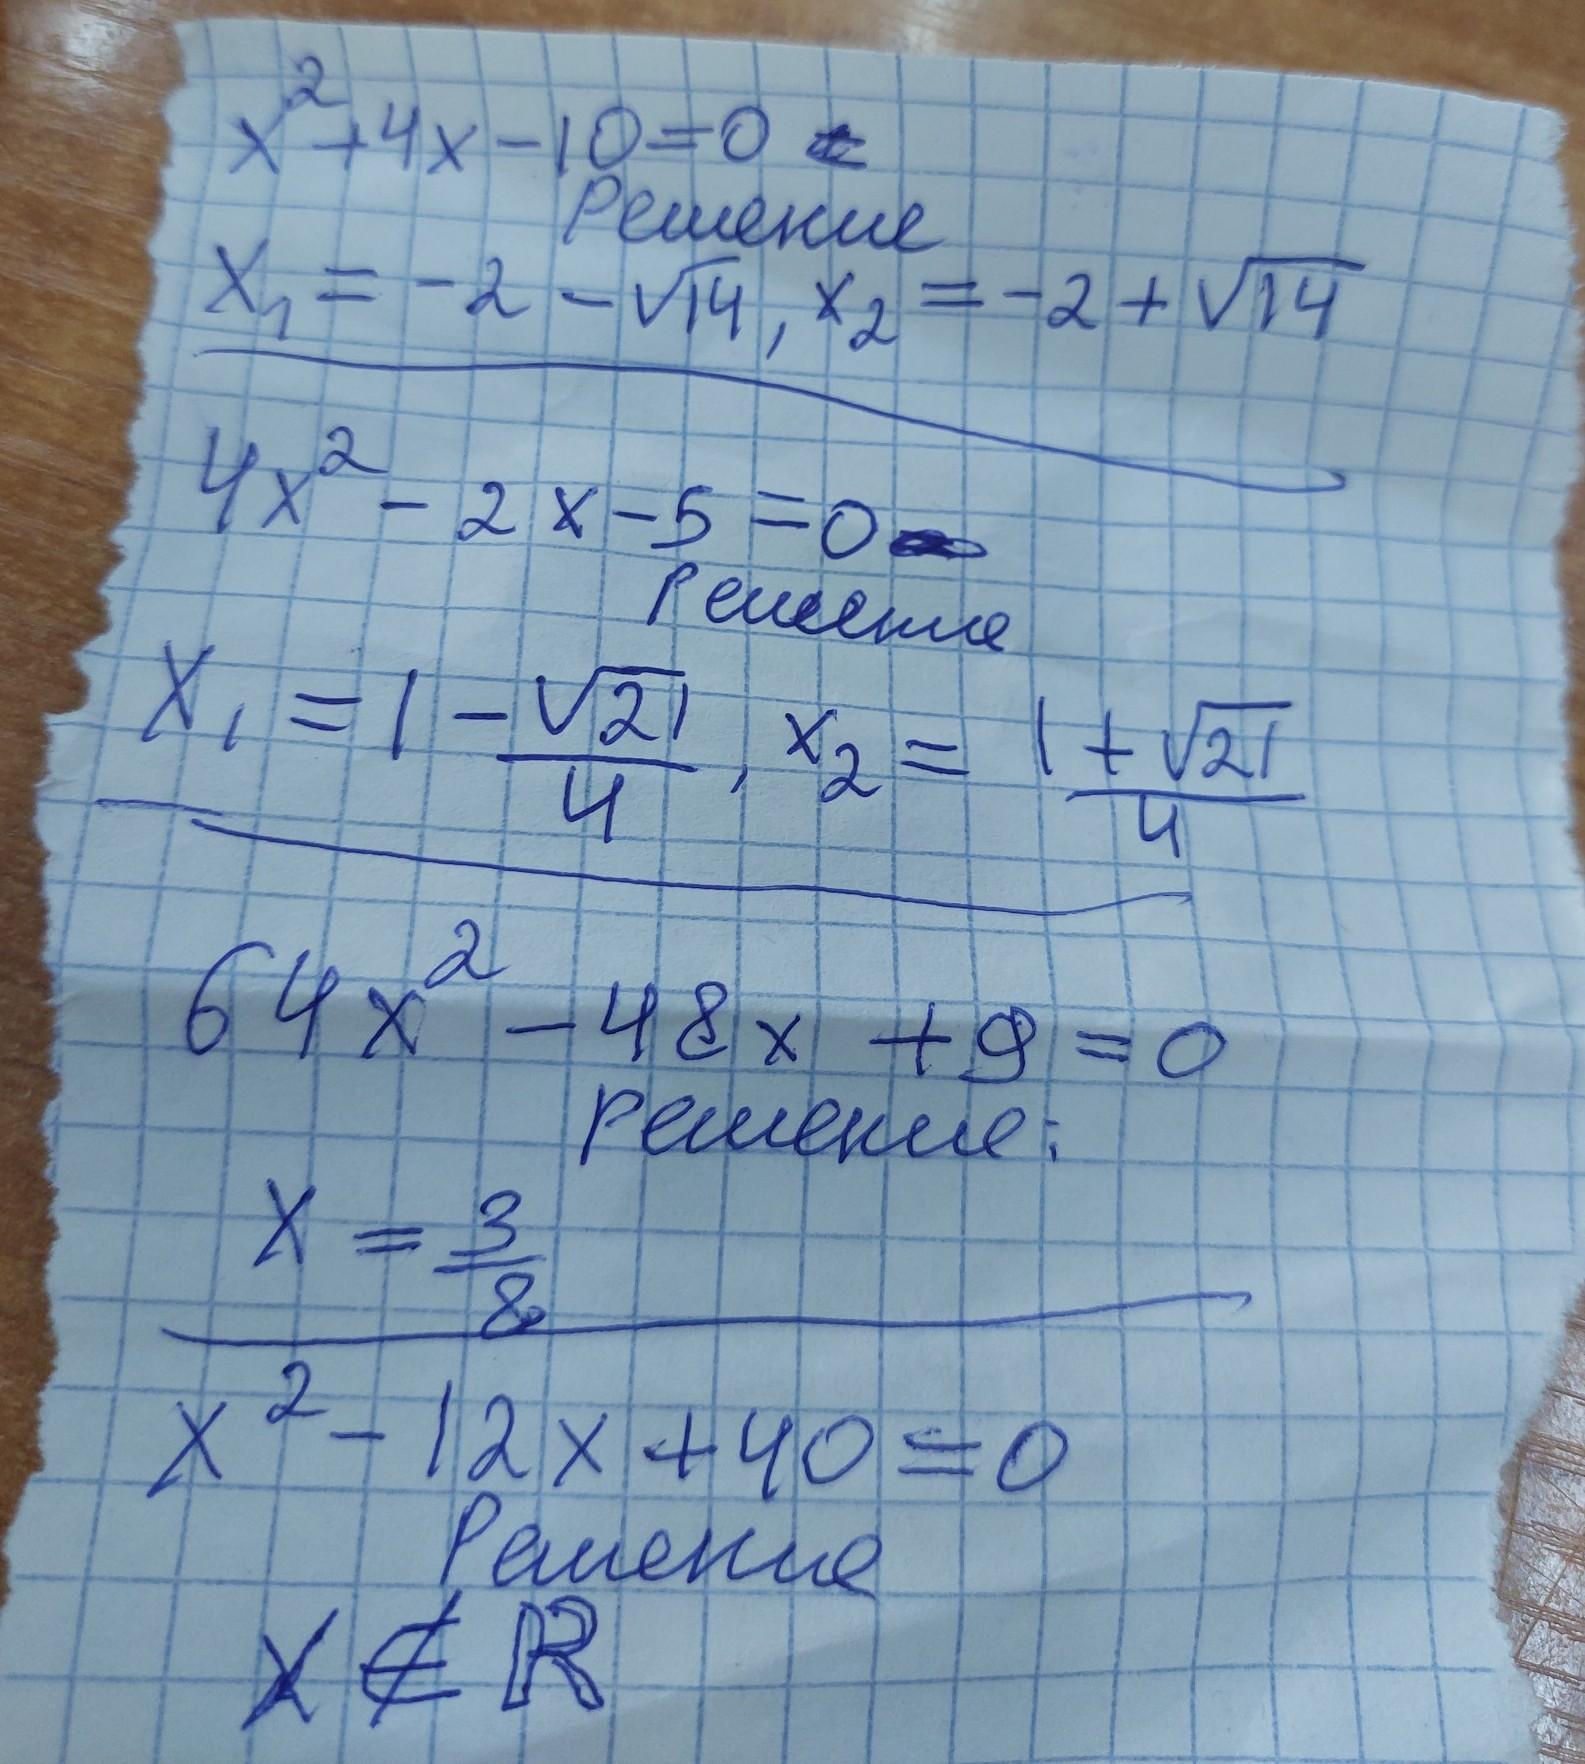 x²+4x-10=0
Решение
x₁ = -2 - √14, x₂ = -2 + √14
4x² - 2x - 5 = 0
Решение
x₁ = 1 - √21/4, x₂ = 1 + √21/4
64x² - 48x + 9 = 0
решение:
x = 3/8
x² - 12x + 40 = 0
Решение
x ∉ ℝ